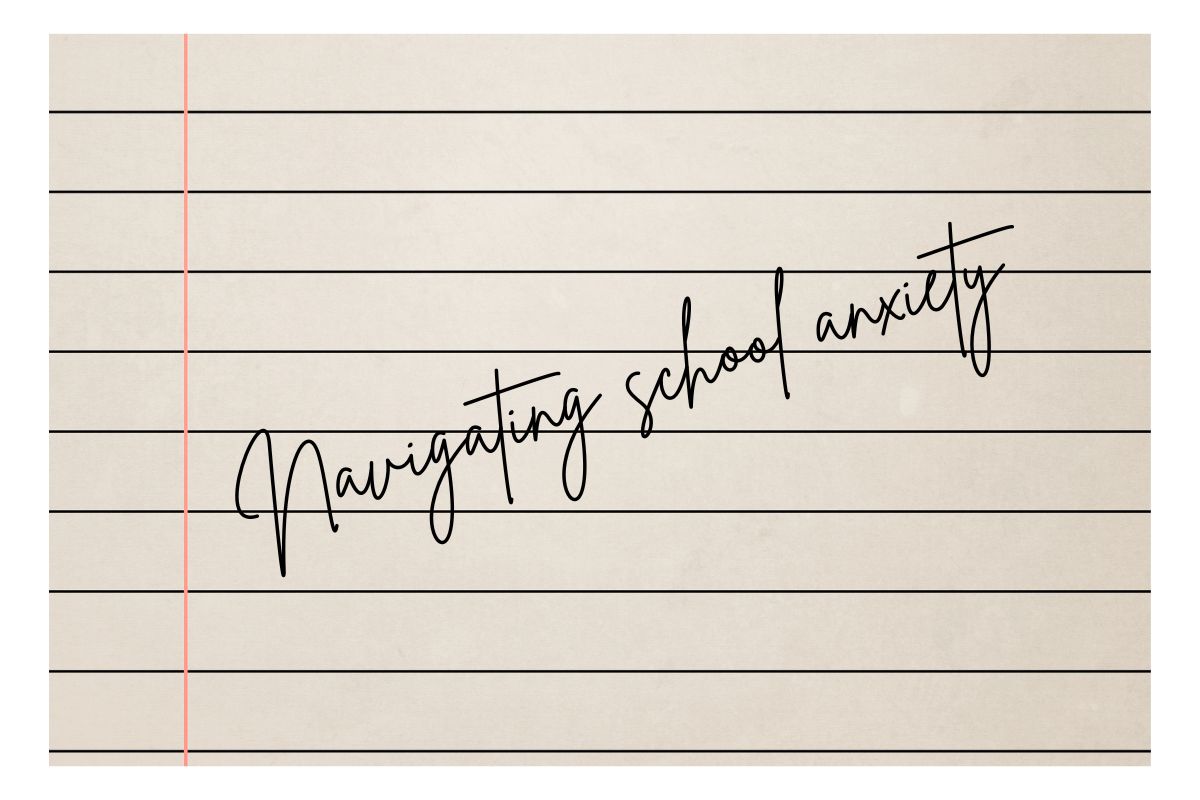 Navigating school anxiety